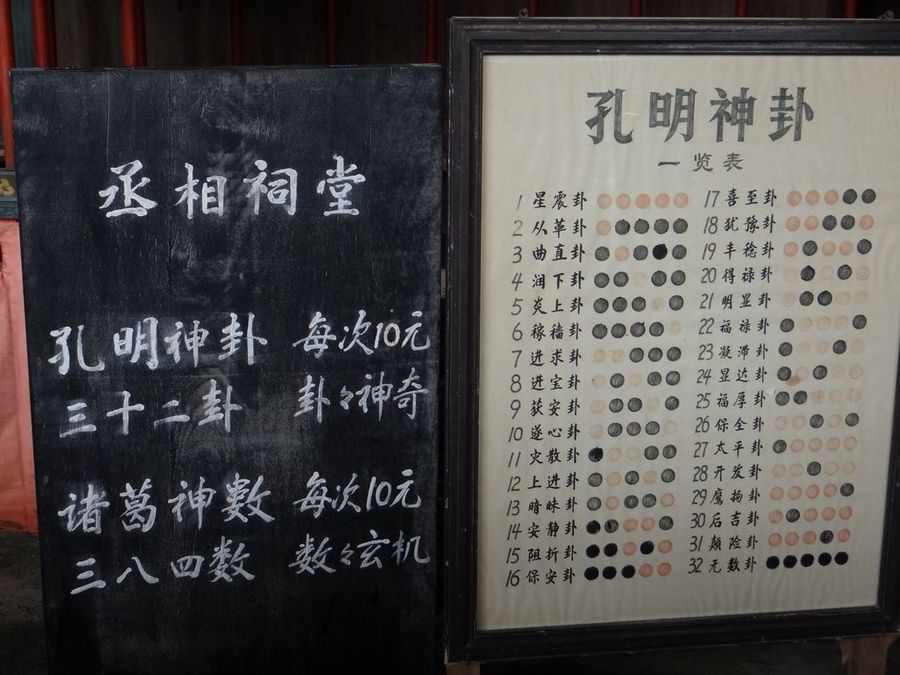 丞相祠堂
孔明神卦 每次10元
三十二卦 卦々神奇
诸葛神數 每次10元
三八四数 数々玄机
孔明神卦
一览表
1 星震卦
2 从革卦
3 曲直卦
4 润下卦
5 炎上卦
6 稼穑卦
7 进求卦
8 进宝卦
9 获安卦
10 遂心卦
11 灾散卦
12 上进卦
13 暗昧卦
14 安静卦
15 阻折卦
16 保安卦
17 喜至卦
18 犹豫卦
19 丰稔卦
20 得禄卦
21 明显卦
22 福禄卦
23 凝滞卦
24 显达卦
25 福厚卦
26 保全卦
27 太平卦
28 开发卦
29 鹰扬卦
30 后吉卦
31 颠险卦
32 无数卦